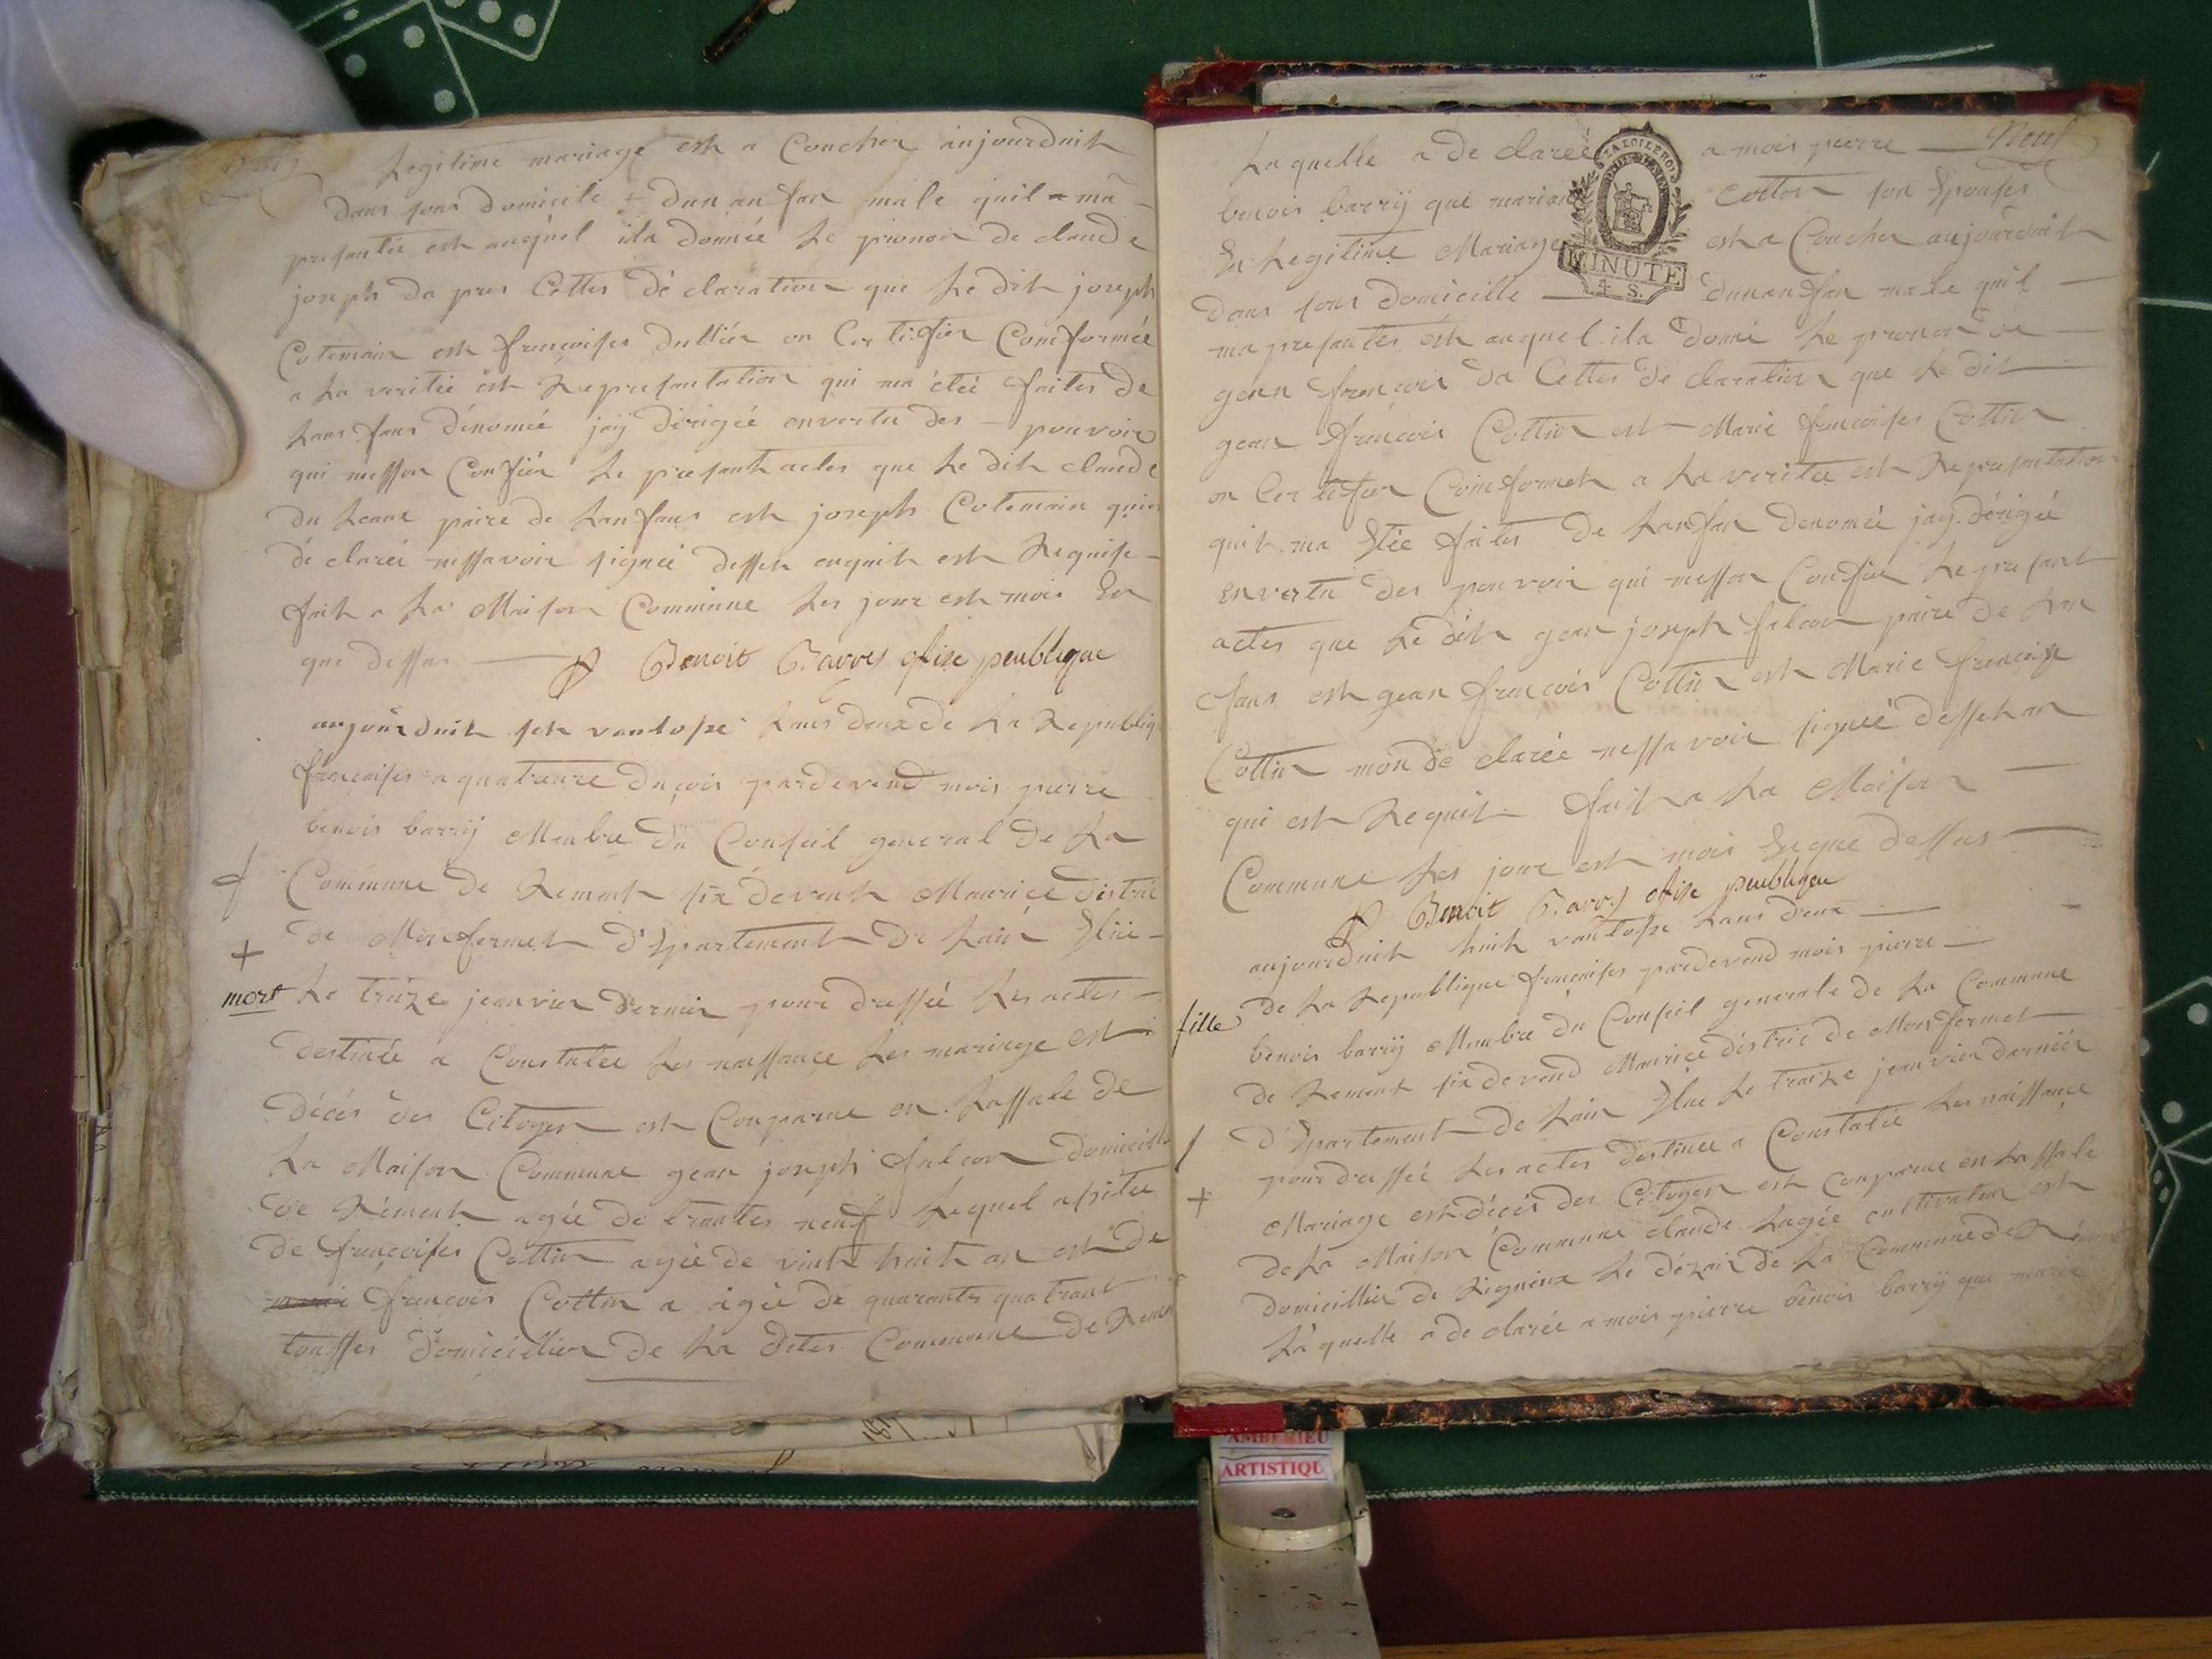 Legitime mariage est a Coucher aujourduit
dans sons domicile + dun anfan male quil ma
presantée est auquel ila donnée Le prenon de claude
joseph da pres Cettes déclaration que Le dit joseph
Cotemain est francoises dullier on Certifier Comformée
a La veritée est Represantation qui ma étée faites de
Lans fans dénomée jay dirigée envertu des pouvoir
qui messon Confiér Le presant actes que Le dit claude
du Leane paire de Lanfans est joseph Cotemain
dé clarée nessavoir signée desseh enquit est Requise
fait a La Maison Commune Les jour est mois En
que dessus Benoit Barry ofise peublique
aujourduit seh vantose Lans deux de La Republiq
francaises a quatreure du çois pardevend mois pierre
benois barrij Membre du Conseil general de La
Commune de Rement six devent Maurice distric
de Monfermet d'Epartement de Lain Elue
mort Le treize jeanvier dernier pour dressée Les actes
destinée a Constatee Les naissance Les mariage est
décés des Citoyen est Comparue en Lassale de
La Maison Commune gean joseph falcon domicill
de Rément agée de trantes neuf Lequel asistée
de françoises Cottin agée de vint huit an est de
francois Cottin a agée de quarantes quatrant
tousses domicillier de La dites Commune de Rem
Neuf
Laquelle a de clarée a mois pierre
benois barrij que mariane Cotton son Epouses
En Legitime Mariage est a Coucher aujourduit
LA LOI LE ROI
MINUTE
4 S.
dans sons domicille dunanfan male quil
ma presantés est auquel ila donné Le prenon de
gean françois da Cettes dé claration que Le dit
gean françois Cottin est Marie francoises Cottin
on Certifier Comformeh a La veritée est Represantation
quit ma Etée faites de Lanfan denomée jay dérigée
envertu des pouvoir qui messon Confiée Le presant
actes que Le dit gean joseph falcon paire de Lan
fans est gean françois Cottin est Marie françoise
Cottin mon dé clarée nessavoir signée desseh an
qui est Requit fait a La Maison
Commune Les jour est mois En que dessus
Benoit Barry ofise peubliqeu
aujourduit huit vantose Lans deux
de La Republique francaises pardevend mois pierre
fille
benois barrij Membre du Conseil generale de La Commune
de Rement six devend Maurice distric de Monfermet
d'Epartement de Lain Elue Le traize jeanvier darniér
pour dressée Les actes destinee a Constatée Les naissançe
Mariage est décés des Citoyen est Comparue en Lassale
de La Maison Commune claude Lagée cultivateur est
domicillier de Rigneux Le dézair de La Commune de
Làquelle a de clarée a mois pierre bénois barrij que marie
AMBERIEU
ARTISTIQU